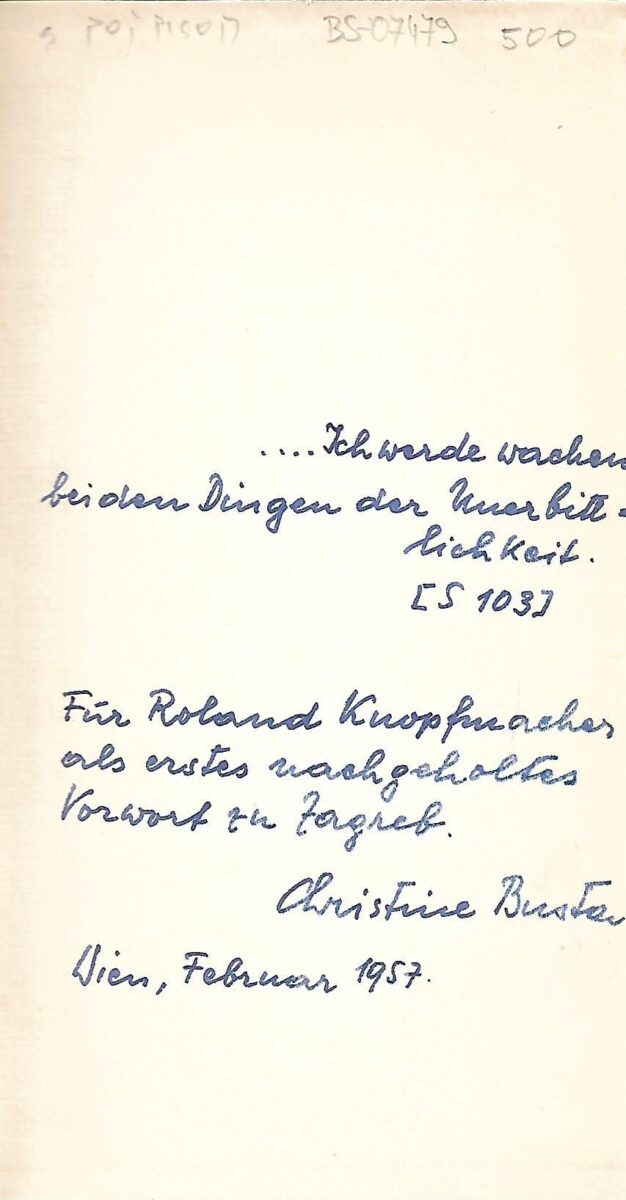 BS-07479 500
.... Ich werde wachen
bei den Dingen der Unerbitt-
lichkeit.
[S 103]
Für Roland Knopfmacher
als erstes nachgeholtes
Vorwort zu Zagreb.
Christine Busta
Wien, Februar 1957.